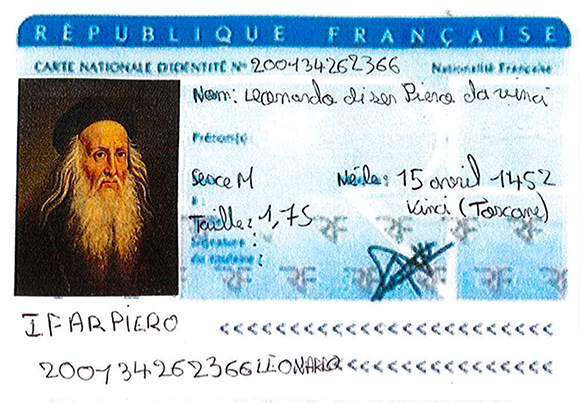 RÉPUBLIQUE FRANÇAISE
CARTE NATIONALE D'IDENTITÉ Nº 200134262366 Nationalité Française
Nom: Leonardo di ser Piero da vinci
Prénom(s):
Sexe M Né(e) le: 15 avril 1452
Taille: 1,75 Vinci (Toscane)
Signature :
du titulaire :
RF RF RF RF RF RF
IFARPIERO <<<<<<<<<<<<<<<<<<<<<<<
200134262366LEONARDO<<<<<<<<<<<<<<<